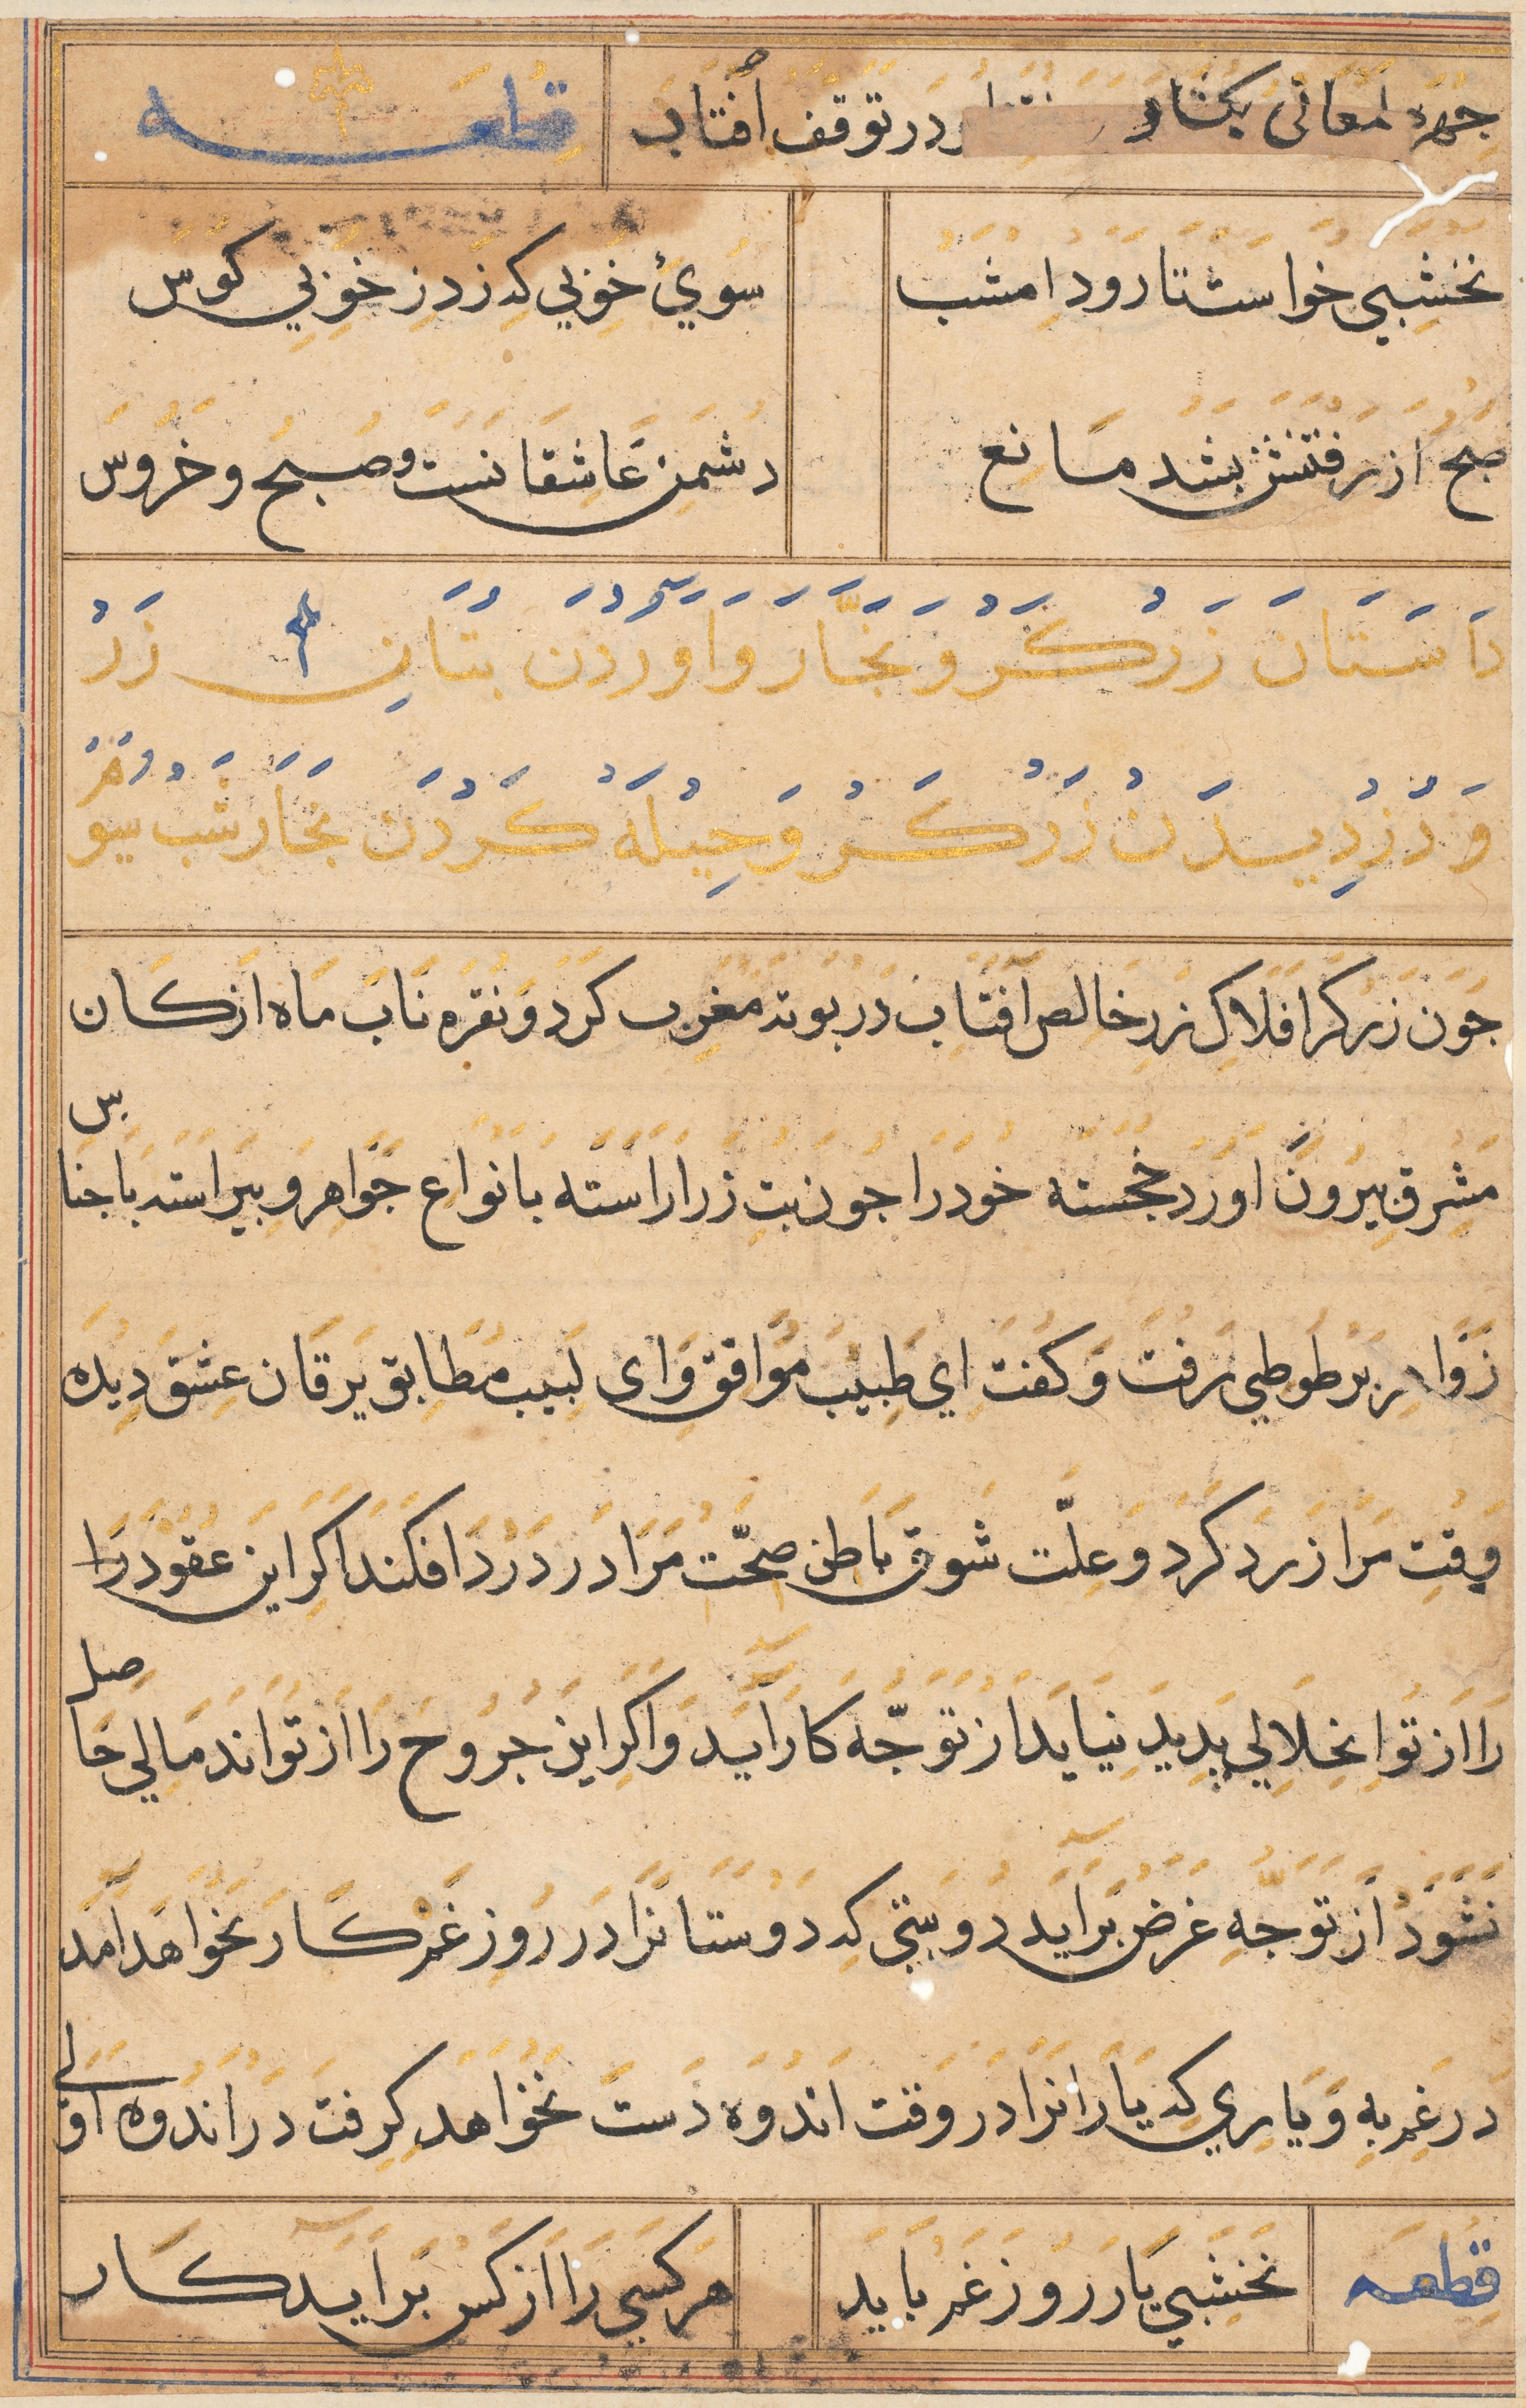 چهره لمعانی بکشاد در توقف افتاد قطعه
نخشبی خواست تا رود امشب سوئ خوبی که زد ز خوبی کوس
صبح از رفتنش بشد مانع دشمن عاشقانست صبح و خروس
داستان زرکر و نجار و اوردن بتان زر
و دزدیدن زرکر و حیله کردن نجار شب سیوم
جون زرکر افلاک زر خالص آفتاب در بوته مغرب کرد و نقره ناب ماه از کان
مشرق بیرون اورد خجسته خود را جون بت زر اراسته بانواع جواهر و بیراسته باجناس
زواهر بر طوطی رفت و کفت ای طبیب موافق و ای لبیب مطابق یرقان عشق دیده
وقت مرا زرد کرد و علّت شوق باطن صحّت مرا در درد افکند اکر این عقود را
را از تو انحلالی پدید نیاید از توجّه کار آید و اکر این جروح را از تو اندمالی حاصل
نشود از توجّه غرض برآید دوستی که دوستانرا در روز غم کار نخواهد آمد
در غم به و یاری که یارانرا در وقت اندوه دست نخواهد کرفت در اندوه اولی
قطعه نخشبی یار روز غم باید هر کسی را از کس برآید کار